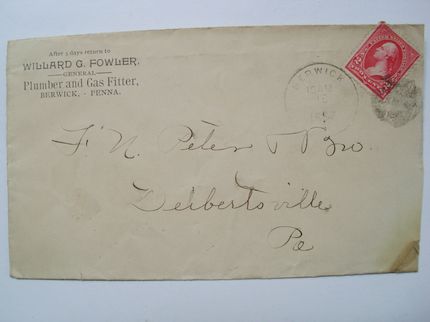 After 5 days return to
WILLARD G. FOWLER,
GENERAL
Plumber and Gas Fitter,
BERWICK, - PENNA.
BERWICK
10 AM
F. N. Peter & Bro.
Deibertsville
Pa